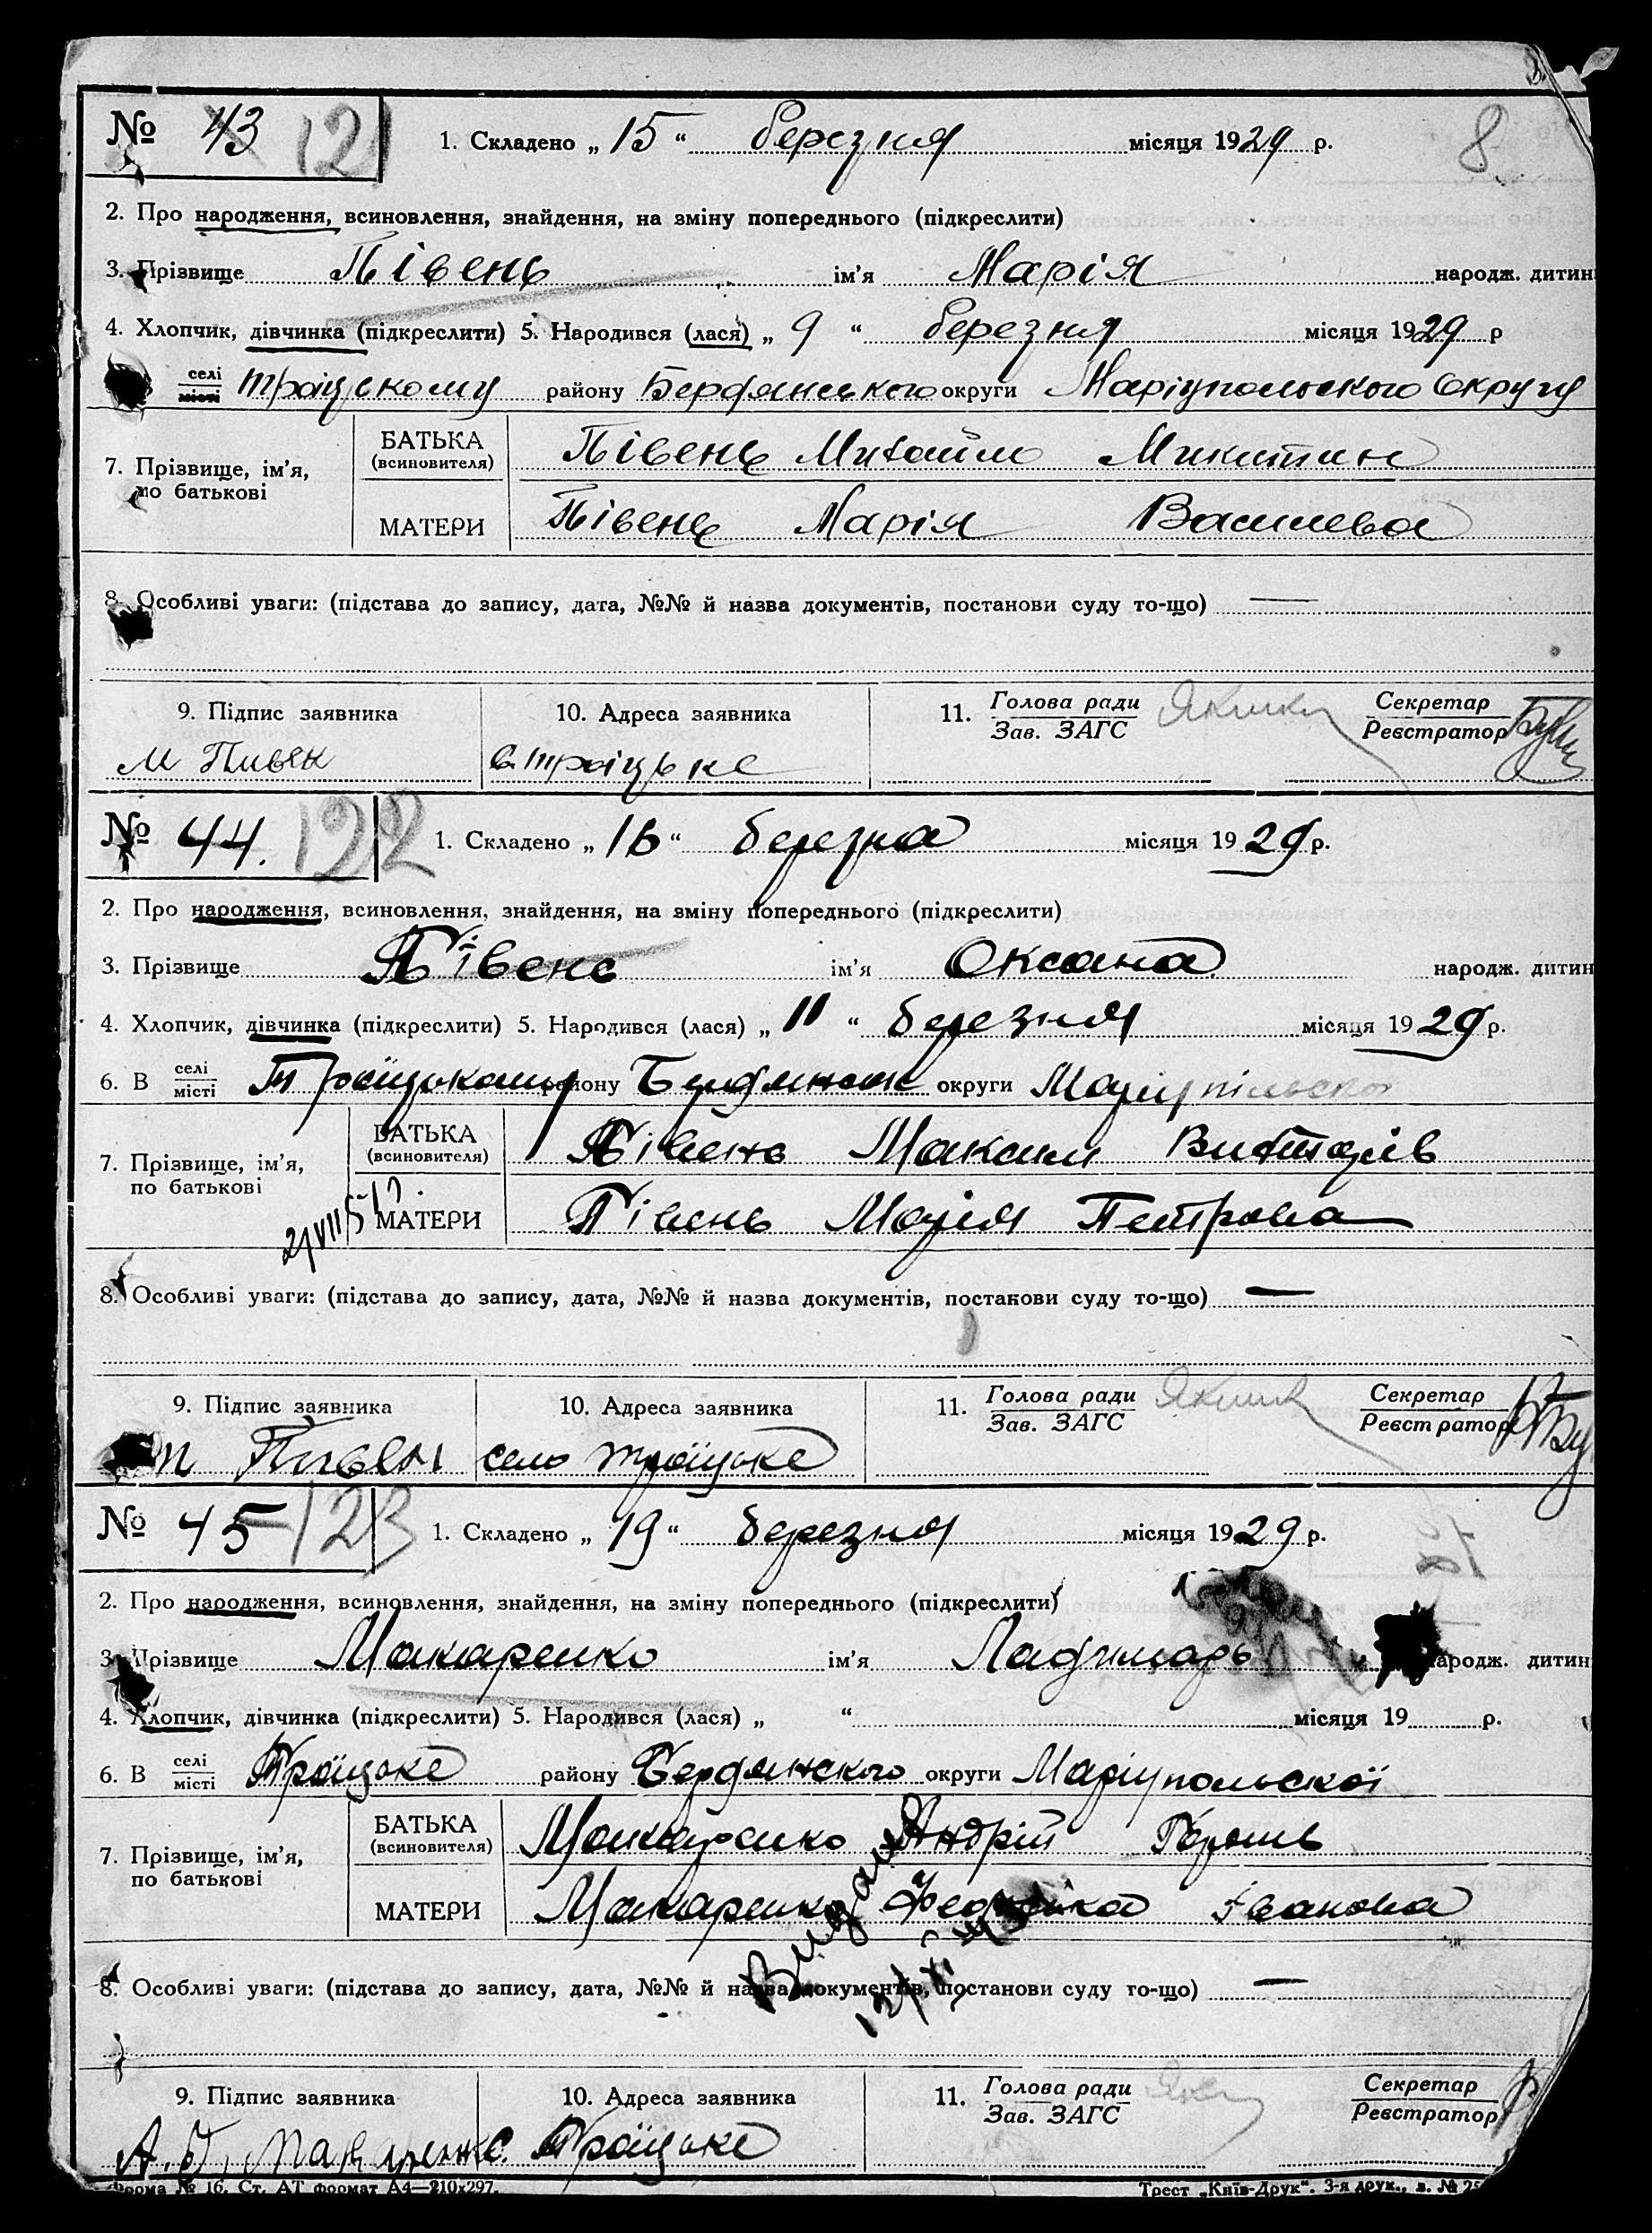 № 43 121 1. Складено „ 15 “ березня місяця 1929 р. 8
2. Про народження, всиновлення, знайдення, на зміну попереднього (підкреслити)
3. Прізвище Півень ім'я Марія народж. дитин
4. Хлопчик, дівчинка (підкреслити) 5. Народився (лася) „ 9 “ березня місяця 1929 р
селі
місті Троіцькому району Бердянського округи Маріупольского Округу
7. Прізвище, ім'я, по батькові
БАТЬКА (всиновителя) Півень Михайло Микитин
МАТЕРИ Півень Марія Василева
8. Особливі уваги: (підстава до запису, дата, №№ й назва документів, постанови суду то-що) —
9. Підпис заявника 10. Адреса заявника 11. Голова ради Секретар
Зав. ЗАГС Реєстратор
М Пивен с. Троіцьке
№ 44. 122 1. Складено „ 16 “ березня місяця 1929 р.
2. Про народження, всиновлення, знайдення, на зміну попереднього (підкреслити)
3. Прізвище Півень ім'я Оксана народж. дитин
4. Хлопчик, дівчинка (підкреслити) 5. Народився (лася) „ 11 “ березня місяця 1929 р.
6. В селі
місті Троїцькому району Бердянськ округи Маріупільсько
7. Прізвище, ім'я, по батькові
БАТЬКА (всиновителя) Півень Максим
МАТЕРИ Півень Марія Петрова
8. Особливі уваги: (підстава до запису, дата, №№ й назва документів, постанови суду то-що) —
9. Підпис заявника 10. Адреса заявника 11. Голова ради Секретар
Зав. ЗАГС Реєстратор
Пивен село Троїцьке
№ 45 123 1. Складено „ 19 “ березня місяця 1929 р.
2. Про народження, всиновлення, знайдення, на зміну попереднього (підкреслити)
3. Прізвище Макаренко ім'я Ладимарь народж. дитин
4. Хлопчик, дівчинка (підкреслити) 5. Народився (лася) „ “ місяця 19 р.
6. В селі
місті Троїцьке району Бердянского округи Маріупольскої
7. Прізвище, ім'я, по батькові
БАТЬКА (всиновителя) Макаренко Андрій
МАТЕРИ Макаренко Іванова
Видан
8. Особливі уваги: (підстава до запису, дата, №№ й назва документів, постанови суду то-що) —
9. Підпис заявника 10. Адреса заявника 11. Голова ради Секретар
Зав. ЗАГС Реєстратор
Макаренко. Троїцьке
Форма № 16. Ст. АТ формат А4—210х297. Трест „Київ-Друк“. 3-я друк., в. № 25